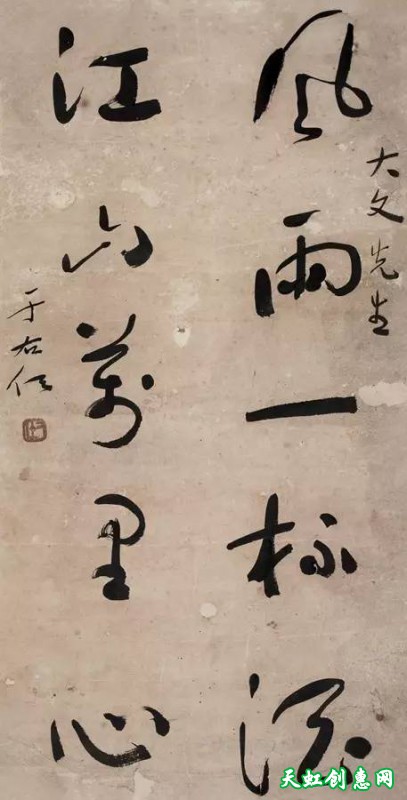 風雨一杯酒
大文先生
江山萬里心
于右任
天虹创惠网